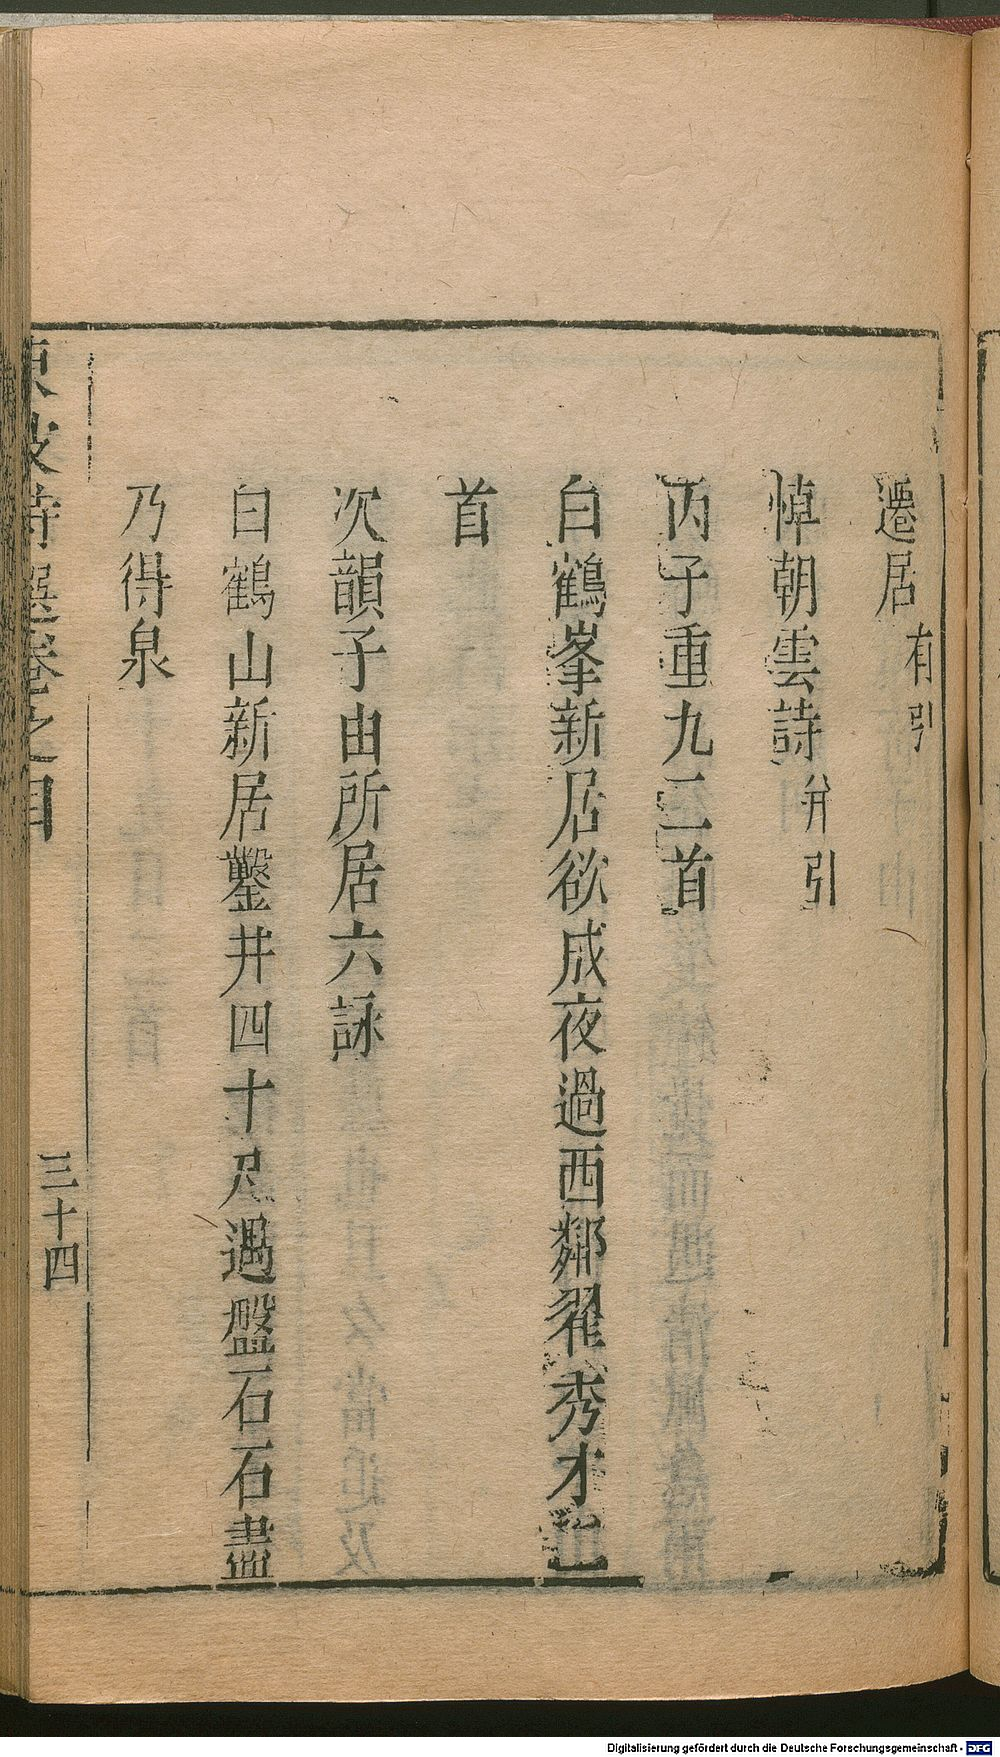 遷居有引
悼朝雲詩并引
丙子重九二首
白鶴峯新居欲成夜過西鄰翟秀才二
首
次韻子由所居六詠
白鶴山新居鑿井四十尺遇盤石石盡
乃得泉
東坡詩選卷之目
三十四
Digitalisierung gefördert durch die Deutsche Forschungsgemeinschaft - DFG